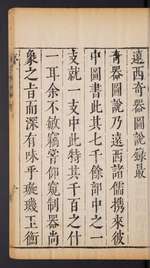 遠西奇器圖說錄最
奇器圖說乃遠西諸儒攜來彼
中圖書此其七千餘部中之一
支就一支中此特其千百之什
一耳余不敏竊嘗仰窺制器尚
象之旨而深有味乎璇璣玉衡